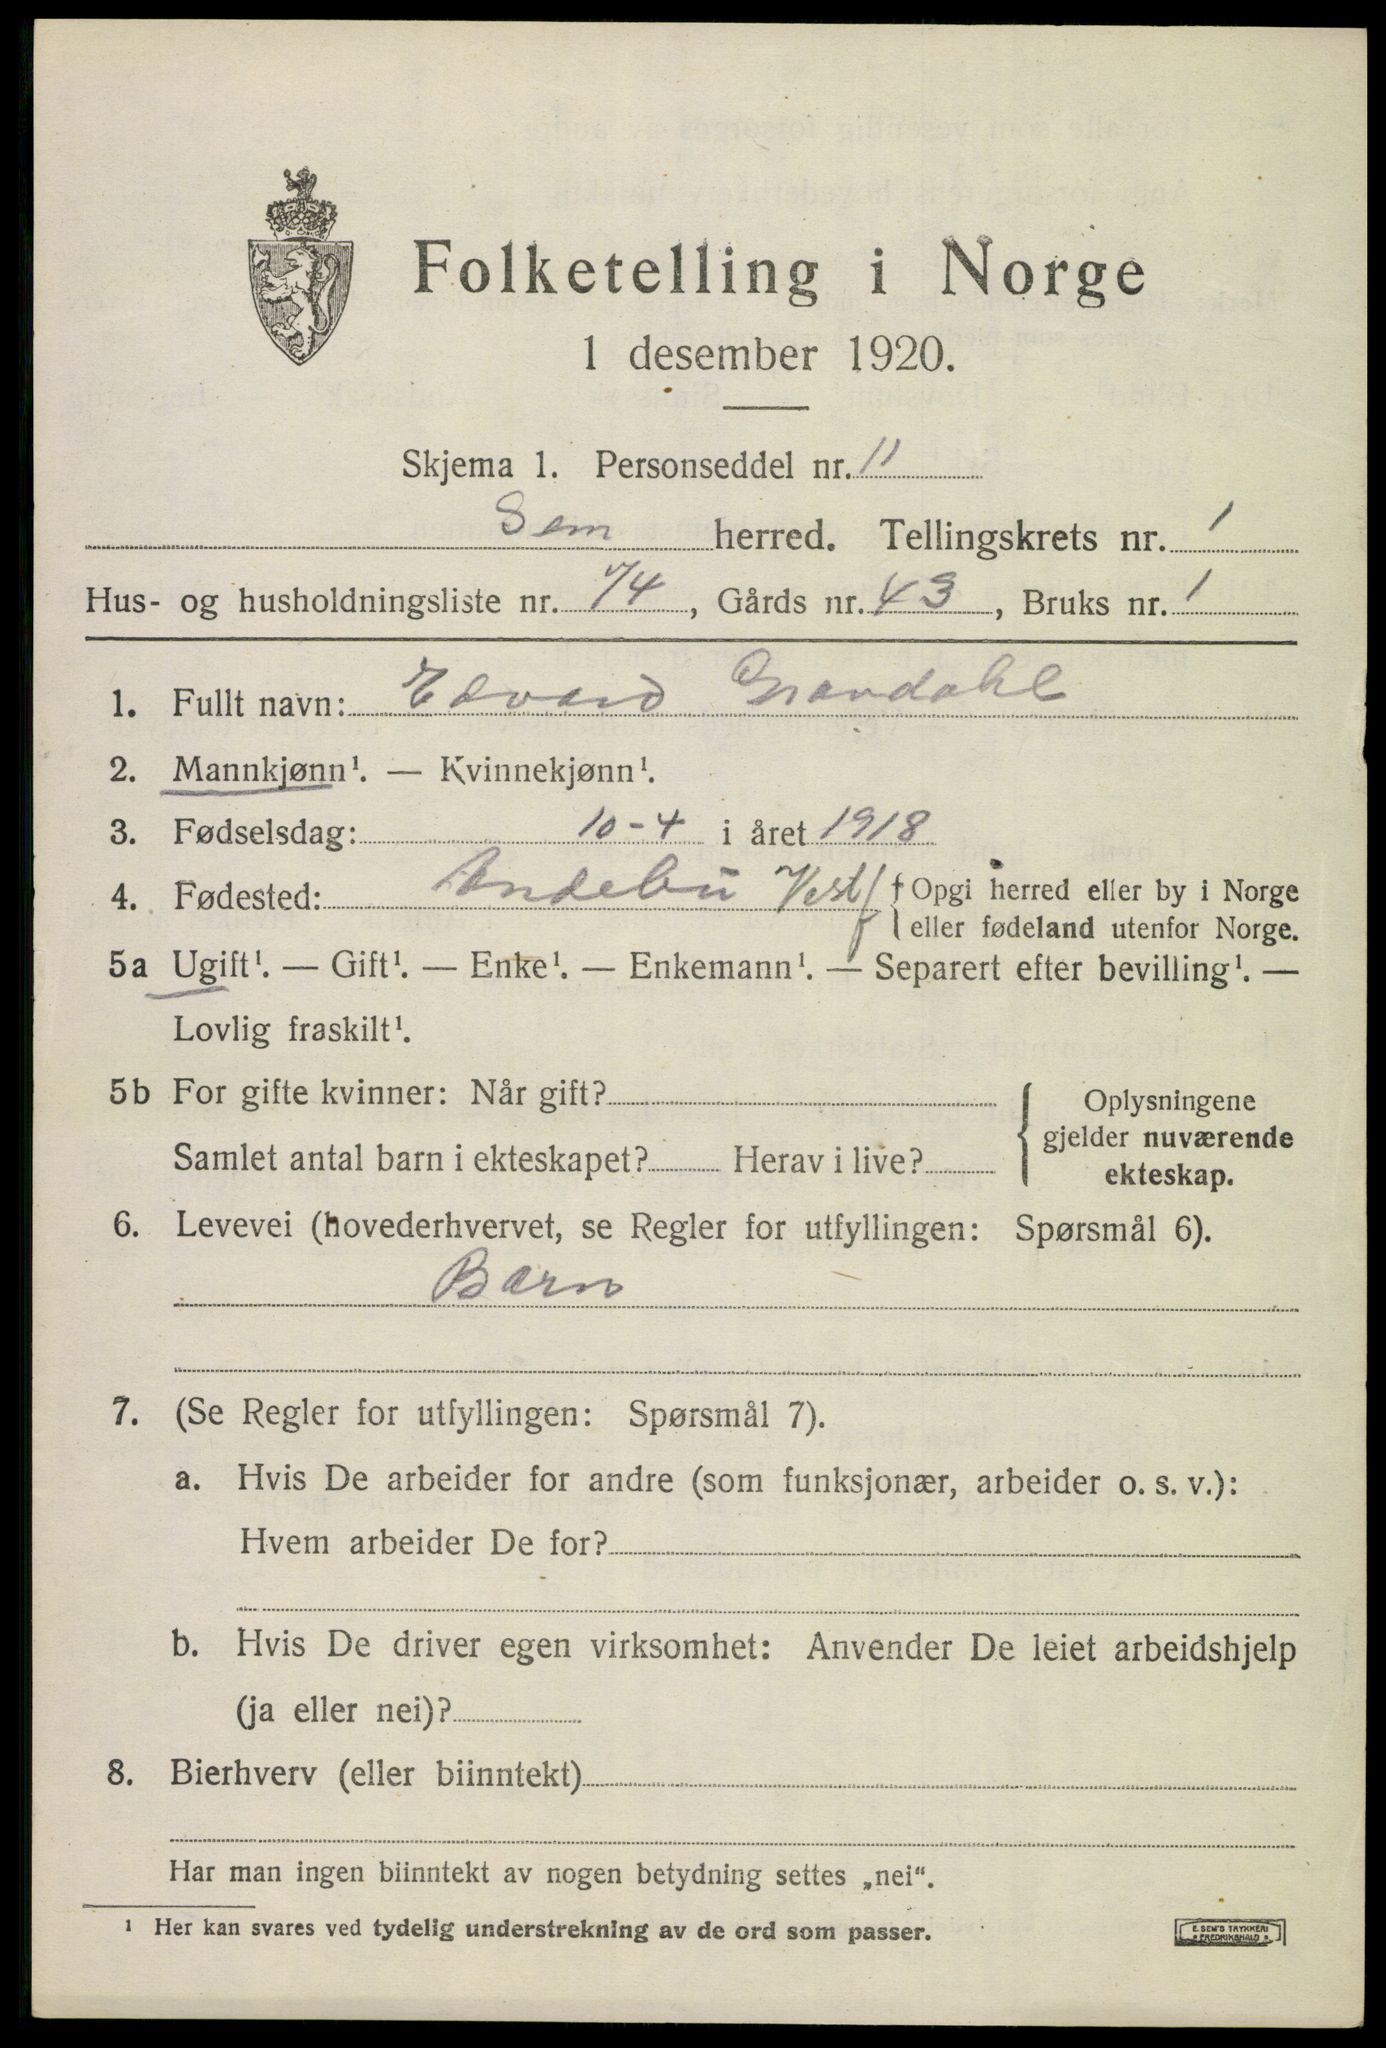 Folketelling i Norge
1 desember 1920.
Skjema 1. Personseddel nr. 11
Sem herred. Tellingskrets nr. 1
Hus- og husholdningsliste nr. 74, Gårds nr. 43, Bruks nr. 1
1. Fullt navn: Edvard Grandahl
2. Mannkjønn¹. — Kvinnekjønn¹.
3. Fødselsdag: 10-4 i året 1918
4. Fødested: Andebu Vestf { Opgi herred eller by i Norge
eller fødeland utenfor Norge.
5a Ugift¹. — Gift¹. — Enke¹. — Enkemann¹. — Separert efter bevilling¹. —
Lovlig fraskilt¹.
5b For gifte kvinner: Når gift?
Samlet antal barn i ekteskapet? Herav i live?
Oplysningene
gjelder nuværende
ekteskap.
6. Levevei (hovederhvervet, se Regler for utfyllingen: Spørsmål 6).
Barn
7. (Se Regler for utfyllingen: Spørsmål 7).
a. Hvis De arbeider for andre (som funksjonær, arbeider o. s. v.):
Hvem arbeider De for?
b. Hvis De driver egen virksomhet: Anvender De leiet arbeidshjelp
(ja eller nei)?
8. Bierhverv (eller biinntekt)
Har man ingen biinntekt av nogen betydning settes „nei“.
¹ Her kan svares ved tydelig understrekning av de ord som passer.
E. SEM'S TRYKKERI
FREDRIKSHALD